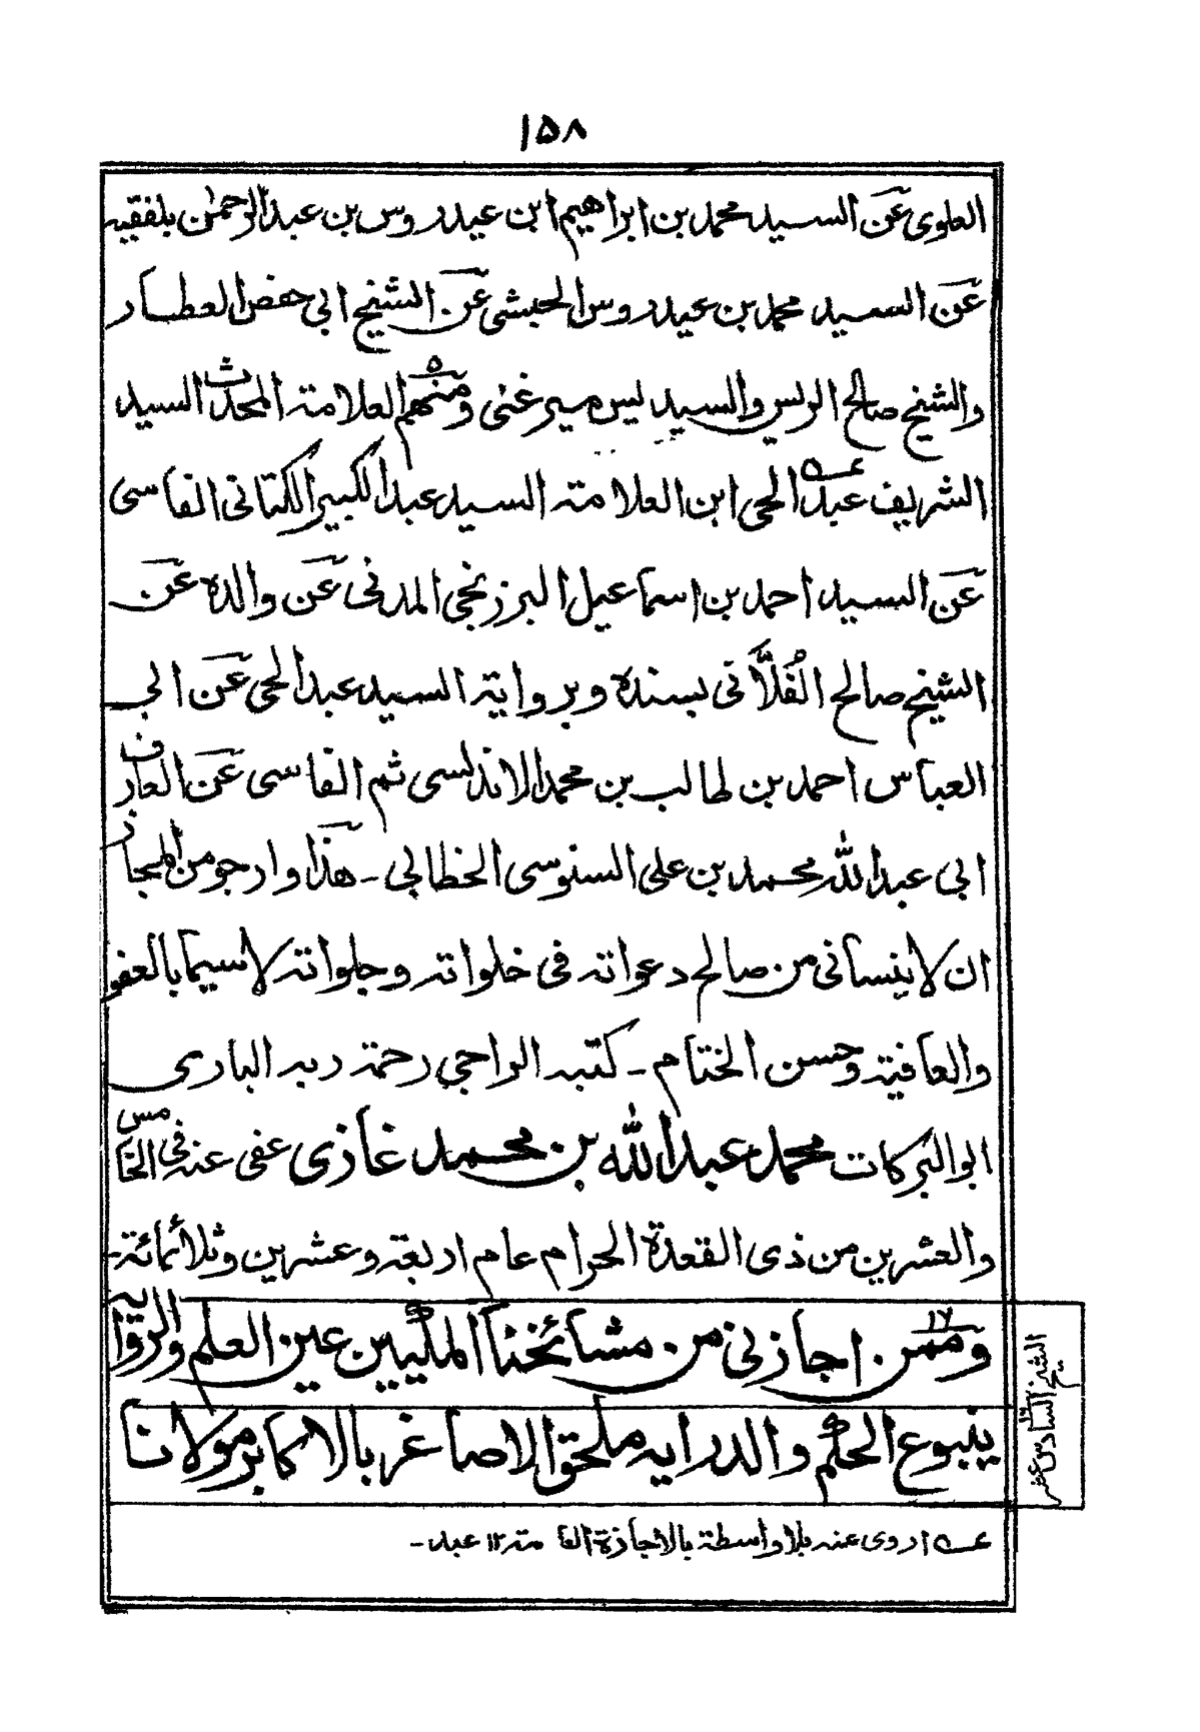 ١٥٨
العلوى عن السيد محمد بن ابراهيم ابن عيدروس بن عبد الرحمٰن بلفقيه
عن السيد محمد بن عيدروس الحبشى عن الشيخ ابى حفص العطار
والشيخ صالح الريس والسيد يس ميرغنى ومنهم ٥ العلامة المحدث السيد
الشريف عبد الحى ابن العلامة السيد عبد الكبير الكتانى الفاسى
عن السيد احمد بن اسماعيل البرزنجى المدنى عن والده عن
الشيخ صالح الفُلاَّنى بسنده وبرواية السيد عبد الحى عن ابى
العباس احمد بن طالب بن محمد الاندلسى ثم الفاسى عن العارف
ابى عبد الله محمد بن على السنوسى الخطابى - هذا وارجو من المجاز
ان لا ينسانى من صالح دعواته فى خلواته وجلواته لا سيما بالعفو
والعافية وحسن الختام - كتبه الراجى رحمة ربه البارى
ابو البركات محمد عبد الله بن محمد غازى عفى عنه فى الخامس
والعشرين من ذى القعدة الحرام عام اربعة وعشرين وثلاثمائة -
وممن ١٧ اجازنى من مشائخنا المكيين عين العلم والرواية
ينبوع الحكم والدراية ملحق الاصاغر بالاكابر مولانا
الشيخ السادس عشر
عـه اروى عنه بلا واسطة بالاجازة العامة ١٢ عبد -